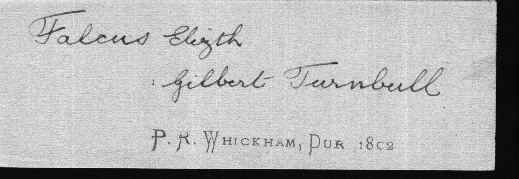 Falcus Elizth
: Gilbert Turnbull
P. R. WHICKHAM, DUR 1802